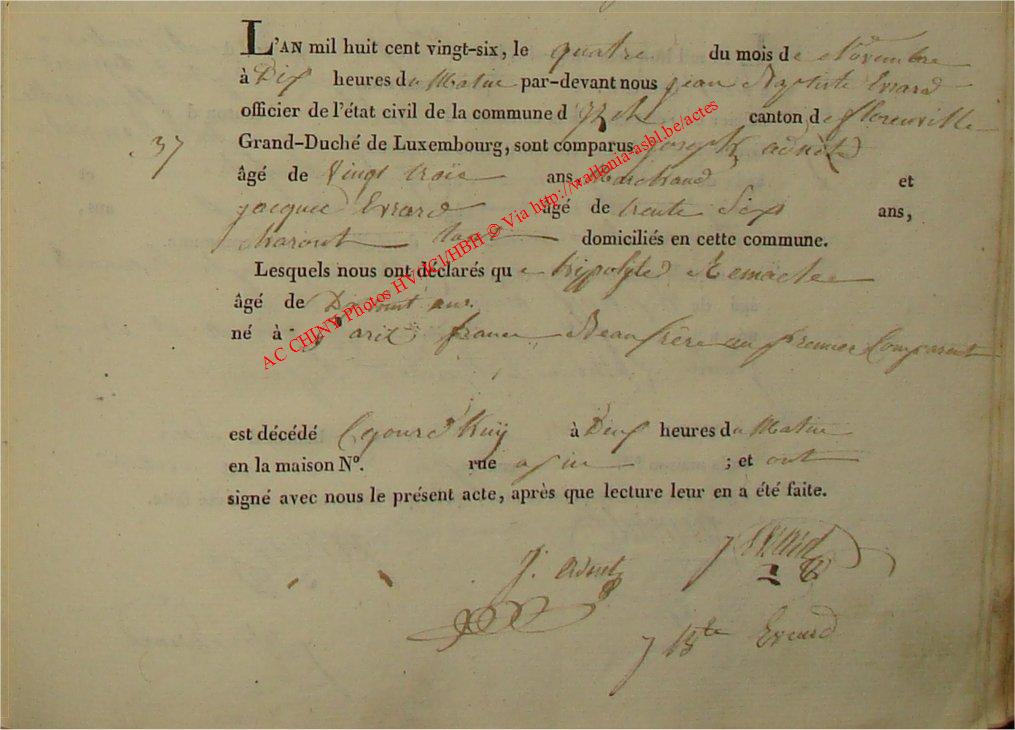 L'AN mil huit cent vingt-six, le quatre du mois de Novembre
à Dix heures du Matin par-devant nous jean Baptiste Evrard
officier de l'état civil de la commune d' canton de florenville
37 Grand-Duché de Luxembourg, sont comparus joseph adnet
âgé de Vingt trois ans, Marchand et
jacque Evrard âgé de trente Sept ans,
domiciliés en cette commune.
Lesquels nous ont déclarés que hippolyte Remacle
âgé de ans
né à Paris france Beau frère au premier Comparant
est décédé à heures du Matin
en la maison N°. rue ; et ont
signé avec nous le présent acte, après que lecture leur en a été faite.
J. Adnet J Evrard
J Bte Evrard
AC CHINY Photos HV/JCl/HBH © Via http://wallonia-asbl.be/actes